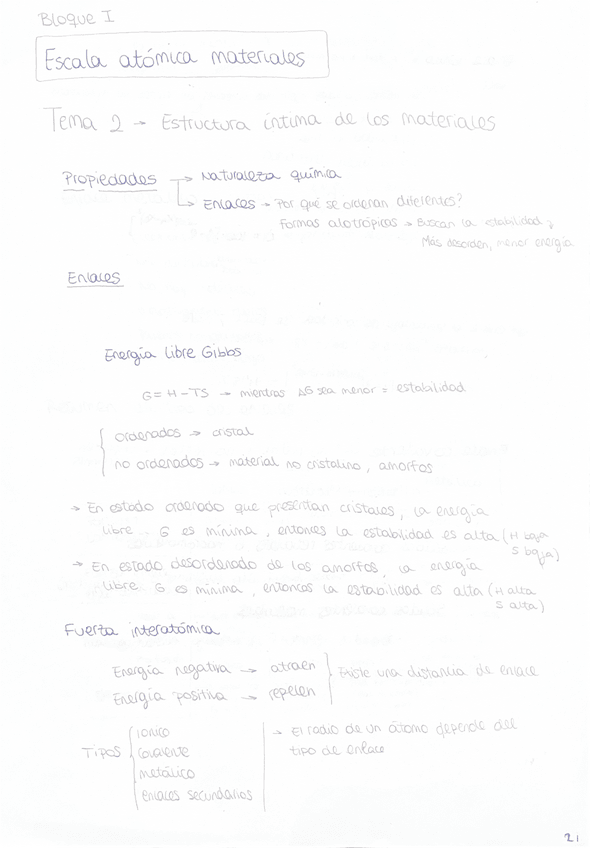 Bloque I
Escala atómica materiales
Tema 2 → Estructura íntima de los materiales
Propiedades → Naturaleza química
→ Enlaces → Por qué se ordenan diferentes?
Formas alotrópicas → Buscan la estabilidad,
Más desorden, menor energía
Enlaces
Energía libre Gibbs
G = H - TS → mientras ΔG sea menor = estabilidad
ordenados → cristal
no ordenados → material no cristalino, amorfos
→ En estado ordenado que presentan cristales, la energía
libre G es mínima, entonces la estabilidad es alta (H baja
S baja)
→ En estado desordenado de los amorfos, la energía
libre G es mínima, entonces la estabilidad es alta (H alta
S alta)
Fuerza interatómica
Energía negativa → atraen
Energía positiva → repelen
Existe una distancia de enlace
TIPOS
iónico
covalente
metálico
enlaces secundarios
→ El radio de un átomo depende del
tipo de enlace
21